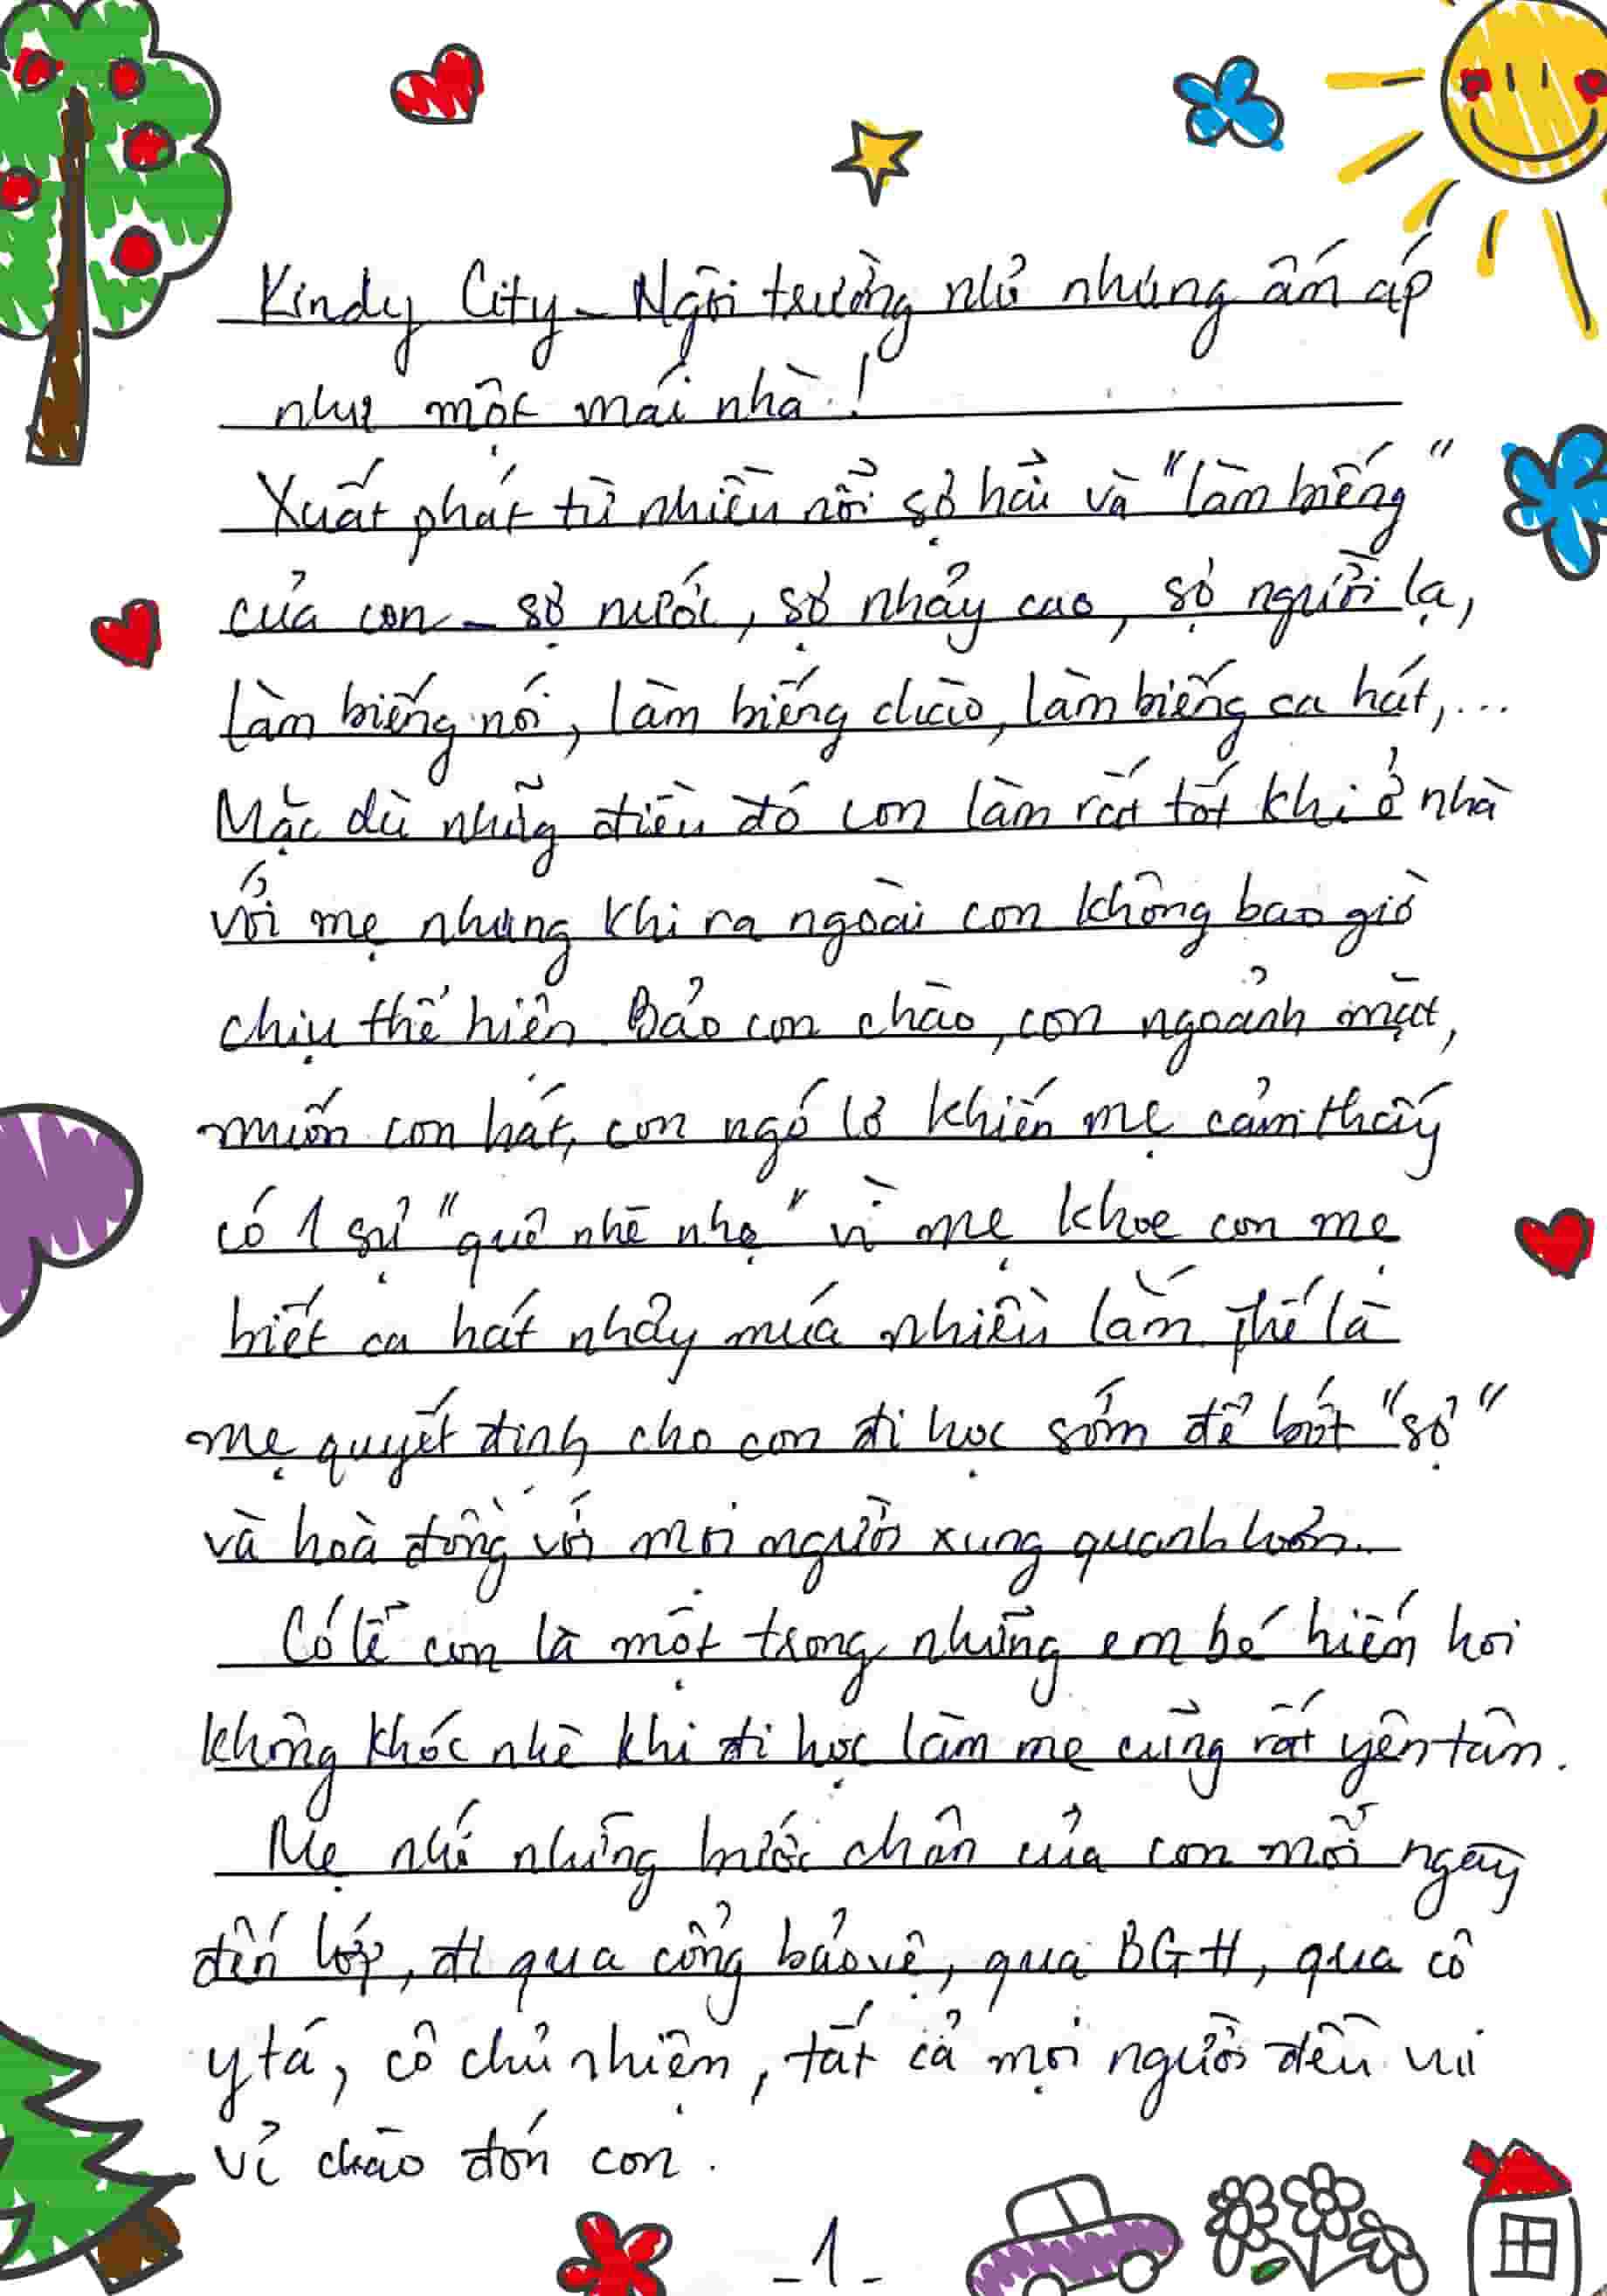 Kindy City - Ngôi trường nhỏ nhưng ấm áp
như một mái nhà!
Xuất phát từ nhiều nỗi sợ hãi và "làm biếng"
của con - sợ nước, sợ nhảy cao, sợ người lạ,
làm biếng nói, làm biếng chào, làm biếng ca hát,...
Mặc dù những điều đó con làm rất tốt khi ở nhà
với mẹ nhưng khi ra ngoài con không bao giờ
chịu thể hiện. Bảo con chào, con ngoảnh mặt,
muốn con hát, con ngó lơ khiến mẹ cảm thấy
có 1 sự "quê nhè nhẹ" vì mẹ khoe con mẹ
biết ca hát nhảy múa nhiều lắm. Thế là
mẹ quyết định cho con đi học sớm để bớt "sợ"
và hoà đồng với mọi người xung quanh hơn.
Có lẽ con là một trong những em bé hiếm hoi
không khóc nhè khi đi học làm mẹ cũng rất yên tâm.
Mẹ nhớ những bước chân của con mỗi ngày
đến lớp, đi qua cổng bảo vệ, qua BGH, qua cô
y tá, cô chủ nhiệm, tất cả mọi người đều vui
vẻ chào đón con.
- 1 -